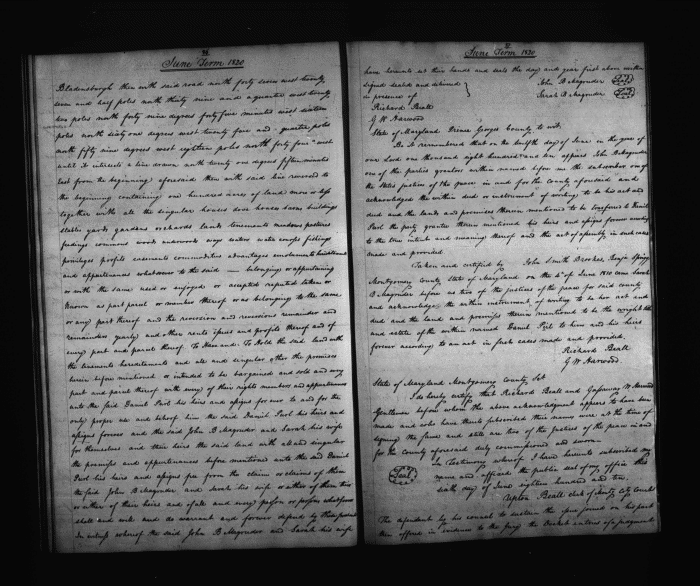 26
June Term 1830
Bladensburgh then with said road north forty seven west twenty
seven and half poles north thirty nine and a quarter west twenty
two poles north forty nine degrees forty five minutes west sixteen
poles north sixty one degrees west twenty five and quarter poles
north fifty nine degrees west eighteen poles north forty four west
until it intersects a line drawn north twenty one degrees fifteen minutes
East from the beginning aforesaid then with said line reversed to
the beginning containing one hundred acres of land more or less
together with all the singular houses dove houses barns buildings
stable yards gardens orchards lands tenements meadows pastures
feedings commons woods underwoods ways waters water courses fishings
priviliges profits easements commodities advantages emoluments hereditaments
and appurtenances whatsoever to the said — belonging or appertaining
or with the same used or enjoyed or accepted reputed taken or
known as part parcel or member thereof or as belonging to the same
or any part thereof and the reversion and reversions remainder and
remainders yearly and other rents issues and profits thereof and of
every part and parcel thereof To Have and To Hold the said land with
the tenements hereditaments and all and singular other the premises
herein before mentioned or intended to be bargained and sold and every
part and parcel thereof with every of their rights members and appurtenances
unto the said Daniel his heirs and assigns for ever to and for the
only proper use and behoof him the said Daniel his heirs and
assigns forever and the said John B Magruder and Sarah his wife
for themselves and their heirs the said land with all and singular
the premises and appurtenances before mentioned unto the said Daniel
his heirs and assigns free from the claim or claims of them
the said John B Magruder and Sarah his wife or either of them their
or either of their heirs and of all and every person or persons whatsoever
shall and will and do warrant and forever defend by these presents
In witness whereof the said John B Magruder and Sarah his wife
June Term 1830
have hereunto set their hands and seals the day and year first above written
signed sealed and delivered } John B Magruder Seal
in presence of Sarah B Magruder Seal
Richard Beall
G W Harwood
State of Maryland Prince Georges County to wit,
Be it remembered that on the day of June in the year of
our Lord one thousand eight hundred and ten appears John B Magruder
one of the parties grantors within named before us the subscriber one of
the States justices of the peace in and for the county aforesaid and
acknowledged the within deed or instrument of writing to be his act and
deed and the lands and premises therein mentioned to be
the party grantee therein mentioned his heirs and assigns forever according
to the true intent and meaning thereof and the act of assembly in such cases
made and provided.
Taken and certified by John Smith Brookes
Montgomery County State of Maryland on the 6th of June 1810 came Sarah
B Magruder before us two of the justices of the peace for said county
and acknowledge the within instrument of writing to be her act and
deed and the land and premises therein mentioned to be the right title
and estate of the within named Daniel to him and his heirs
forever according to an act in such cases made and provided.
Richard Beall
G W Harwood.
State of Maryland Montgomery County Sct
I do hereby certify that Richard Beall and W Harwood
Gentlemen before whom the above acknowledgment appears to have been
made and who have thereto subscribed their names were at the time of
signing the same and still are two of the justices of the peace in and
for the county aforesaid duly commissioned and sworn.
In Testimony whereof I have hereunto subscribed my
Seal name and affixed the public seal of my office this
sixth day of June eighteen hundred and ten.
Upton Beall clerk of County Court
The defendant by his counsel to sustain the issue joined on his part
then offered in evidence to the jury the docket entries of a judgment